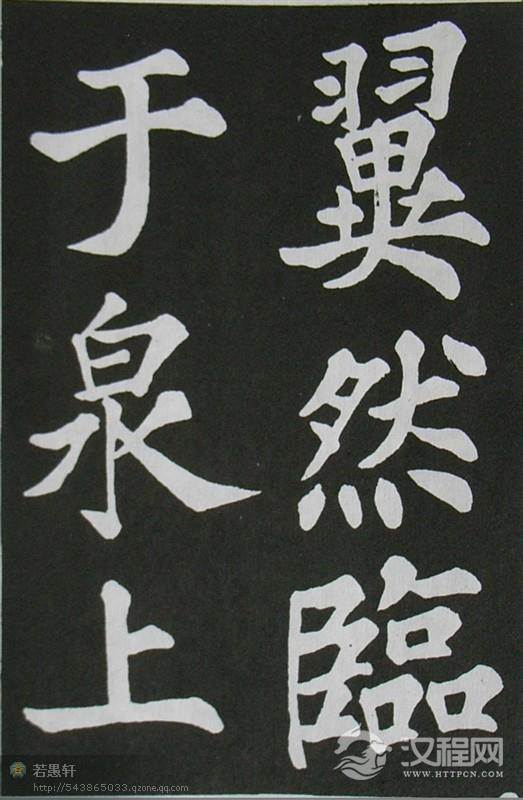 翼然臨
于泉上
若愚轩
http://543865033.qzone.qq.com
汉程网
WWW.HTTPCN.COM